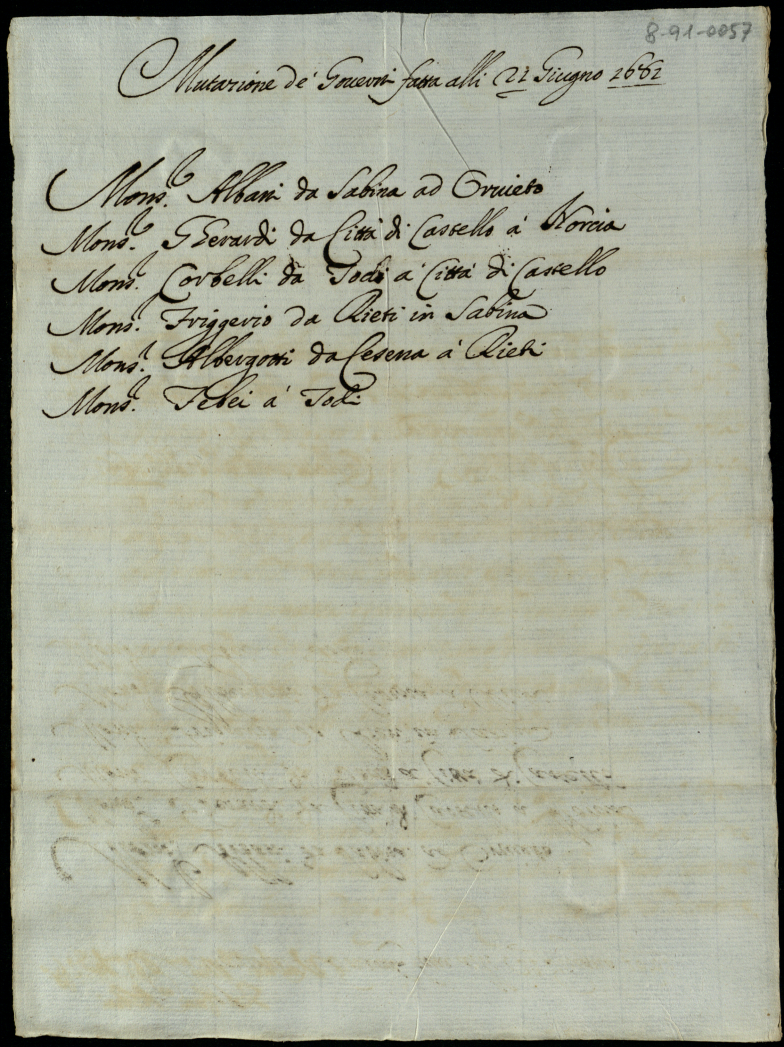 8-91-0057
Mutazione de' Governi fatta alli 21 Giugno 1681
Mons.r Albani da Sabina ad Orvieto
Mons.r Gherardi da Città di Castello à Norcia
Mons.r Corbelli da Todi a Città di Castello
Mons.r Friggerio da Rieti in Sabina
Mons.r Albergotti da Cesena à Rieti
Mons.r Febei à Todi